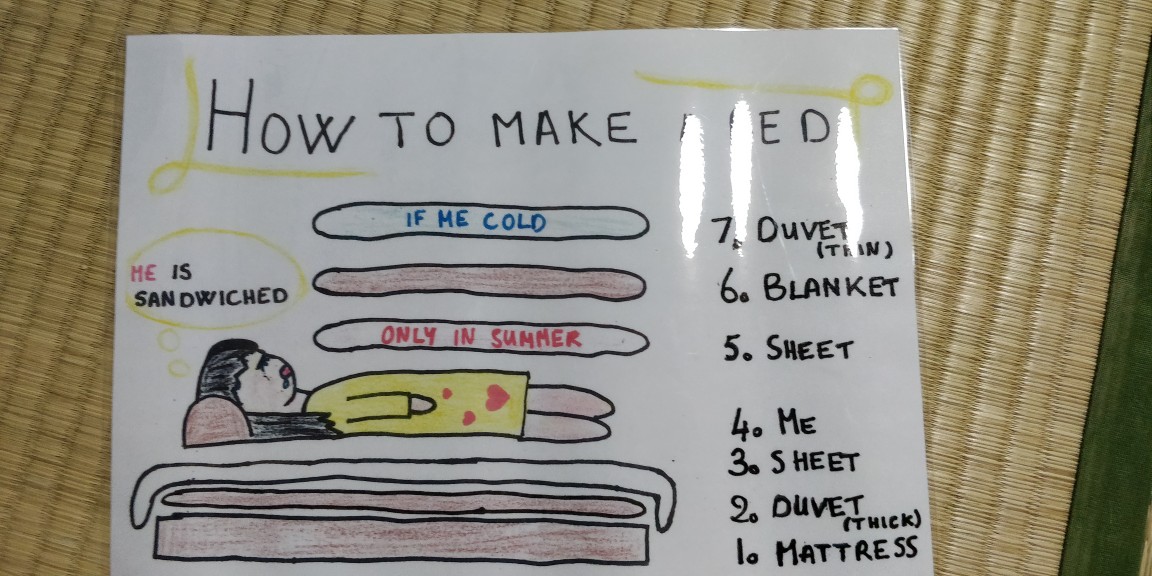 HOW TO MAKE BED
IF ME COLD
ME IS
SANDWICHED
ONLY IN SUMMER
7. DUVET
(THIN)
6. BLANKET
5. SHEET
4. ME
3. SHEET
2. DUVET
(THICK)
1. MATTRESS